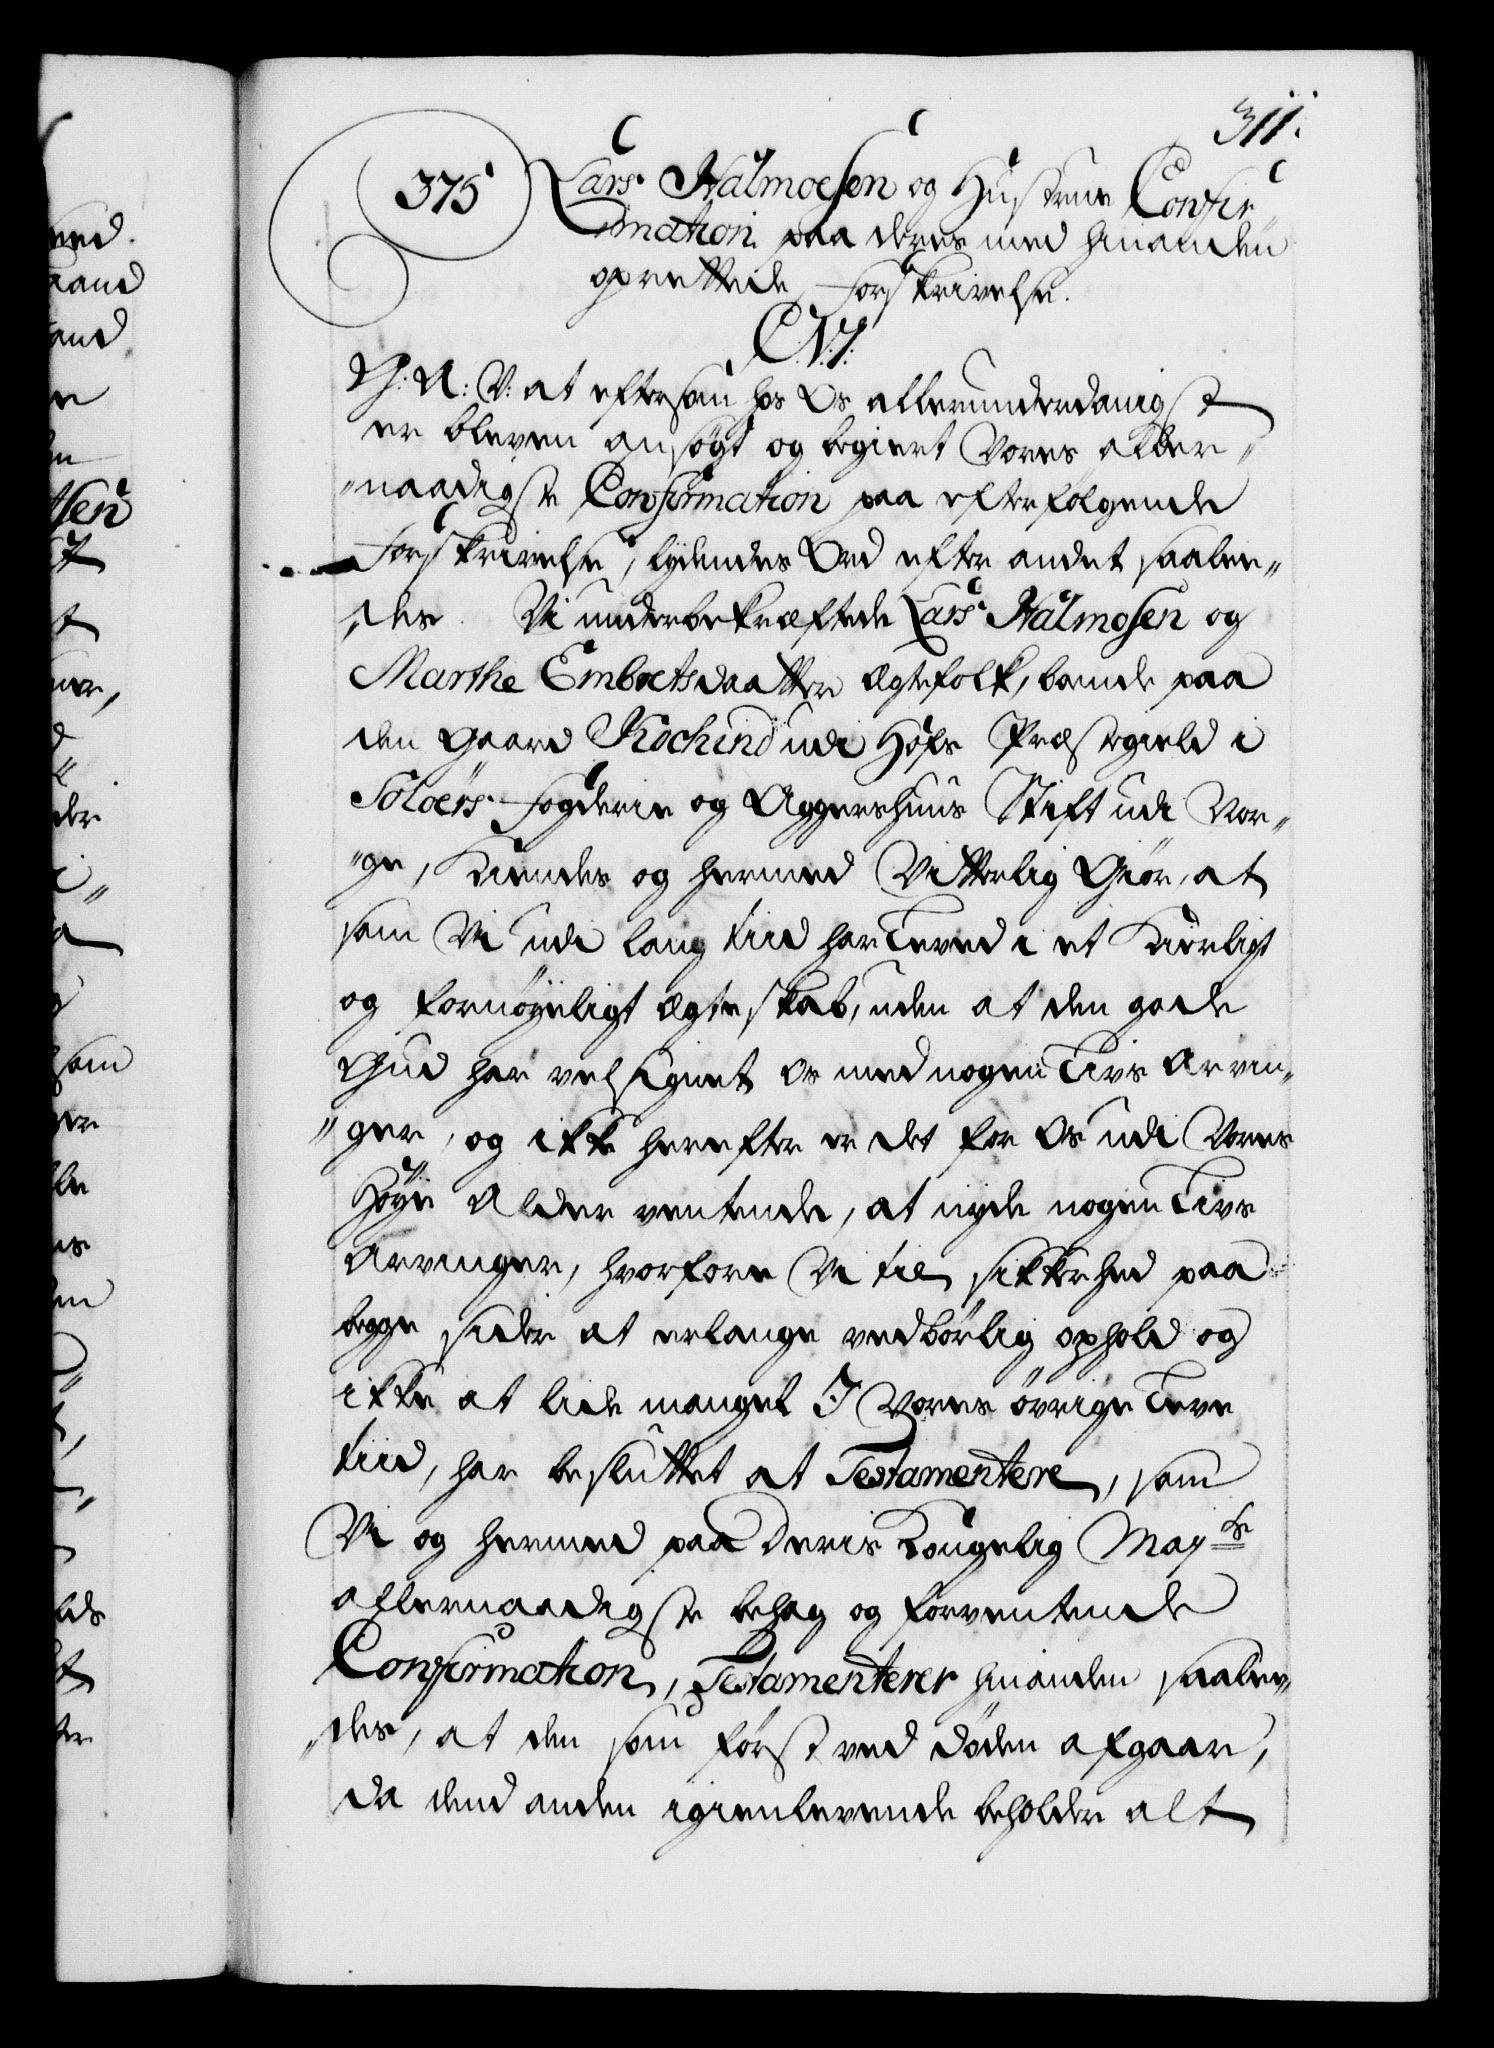 311.
375
Lars Halmoesen og Hustrue Confir„
mation paa deres med hinanden
oprettede Forskrivelse.
C.V.I.
G: A: V: at eftersom hos Os allerunderdanigst
er bleven ansøgt og begiert Vores aller„
„naadigste Confirmation paa efterfølgende
Forskrivelse, lydendes Ord efter andet saalee„
„des. Vi underbekræftede Lars Halmosen og
Marthe Embretsdaatter Ægtefolk, boende paa
den Gaard Kochind udi Hofs Præstegield i
Soloers Fogderie og Aggershuus Stift udi Nor„
„ge, Kiendes og hermed Vitterlig Giør, at
som Vi udi lang tiid har Leved i et Kierligt
og fornøyeligt Ægteskab, uden at den gode
Gud har velsignet Os med nogen Livs Arvin„
„ger, og ikke herefter er det for Os udi Vores
Høye Alder ventende, at nyde nogen Livs
Arvinger, hvorfore Vi til sikkerhed paa
begge sider at erlange vedbørlig ophold og
ikke at lide mangel I Vores øvrige Leve
tiid, har besluttet at Testamentere, som
Vi og hermed paa Deris Kongelig Mayts
allernaadigste behag og forventende
Confirmation, Testamenterer hinanden saalee„
„des, at den som først ved døden afgaar,
da dend anden igienlevende beholder alt